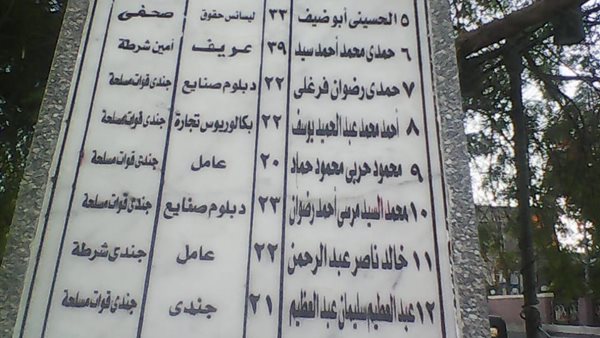 ٥ الحسينى أبو ضيف ٣٣ ليسانس حقوق صحفى
٦ حمدى محمد أحمد سيد ٣٩ عريف أمين شرطة
٧ حمدى رضوان فرغلى ٢٢ دبلوم صنايع جندى قوات مسلحة
٨ أحمد محمد عبد الحميد يوسف ٢٢ بكالوريوس تجارة جندى قوات مسلحة
٩ محمود حربى محمود حماد ٢٠ عامل جندى قوات مسلحة
١٠ محمد السيد مرسى أحمد رضوان ٢٣ دبلوم صنايع جندى قوات مسلحة
١١ خالد ناصر عبد الرحمن ٢٢ عامل جندى شرطة
١٢ عبد العظيم سليمان عبد العظيم ٢١ جندى جندى قوات مسلحة